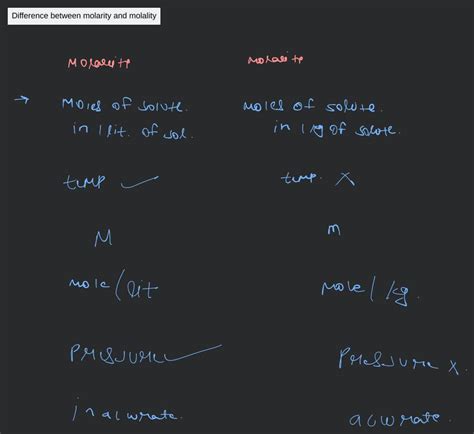 Difference between molarity and molality
Molarity molality
→ Moles of solute. moles of solute.
in 1 lit. of sol. in 1 kg of solute.
temp ✓ temp. X
M m
mole/lit mole/kg.
Pressure ✓ Pressure X.
inacurate. acurate.